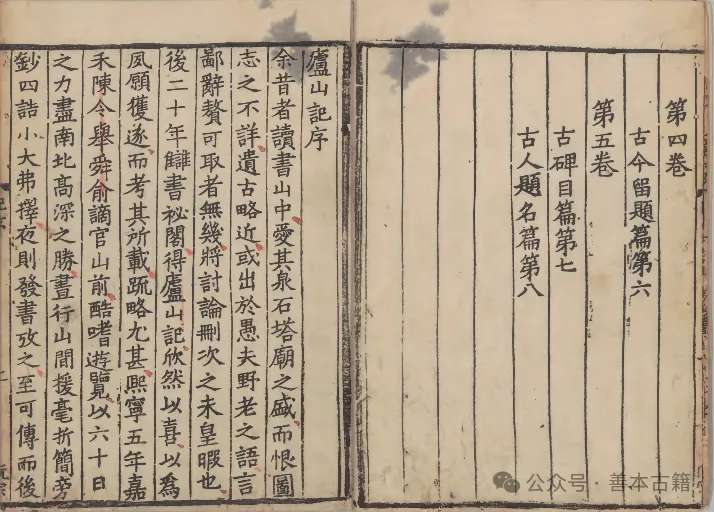 第四卷
古今留題篇第六
第五卷
古碑目篇第七
古人題名篇第八
廬山記序
余昔者讀書山中愛其泉石塔廟之盛而恨圖
志之不詳遺古略近或出於愚夫野老之語言
鄙辭贅可取者無幾將討論刪次之未皇暇也
後二十年讎書祕閣得廬山記欣然以喜以爲
夙願獲遂而考其所載疏略尤甚熙寧五年嘉
禾陳令舉舜俞謫官山前酷嗜遊覽以六十日
之力盡南北高深之勝晝行山間援毫折簡旁
鈔四詰小大弗擇夜則發書攷之至可傳而後
公众号·善本古籍